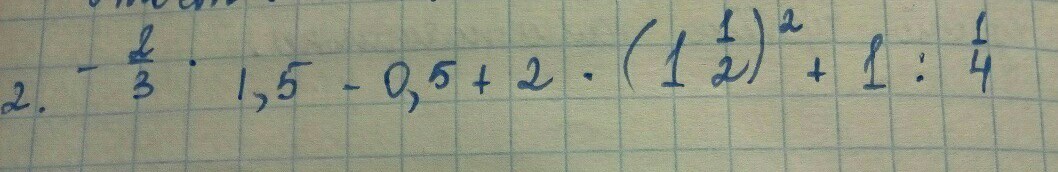 2. - 2/3 · 1,5 - 0,5 + 2 · (1 1/2)² + 1 : 1/4